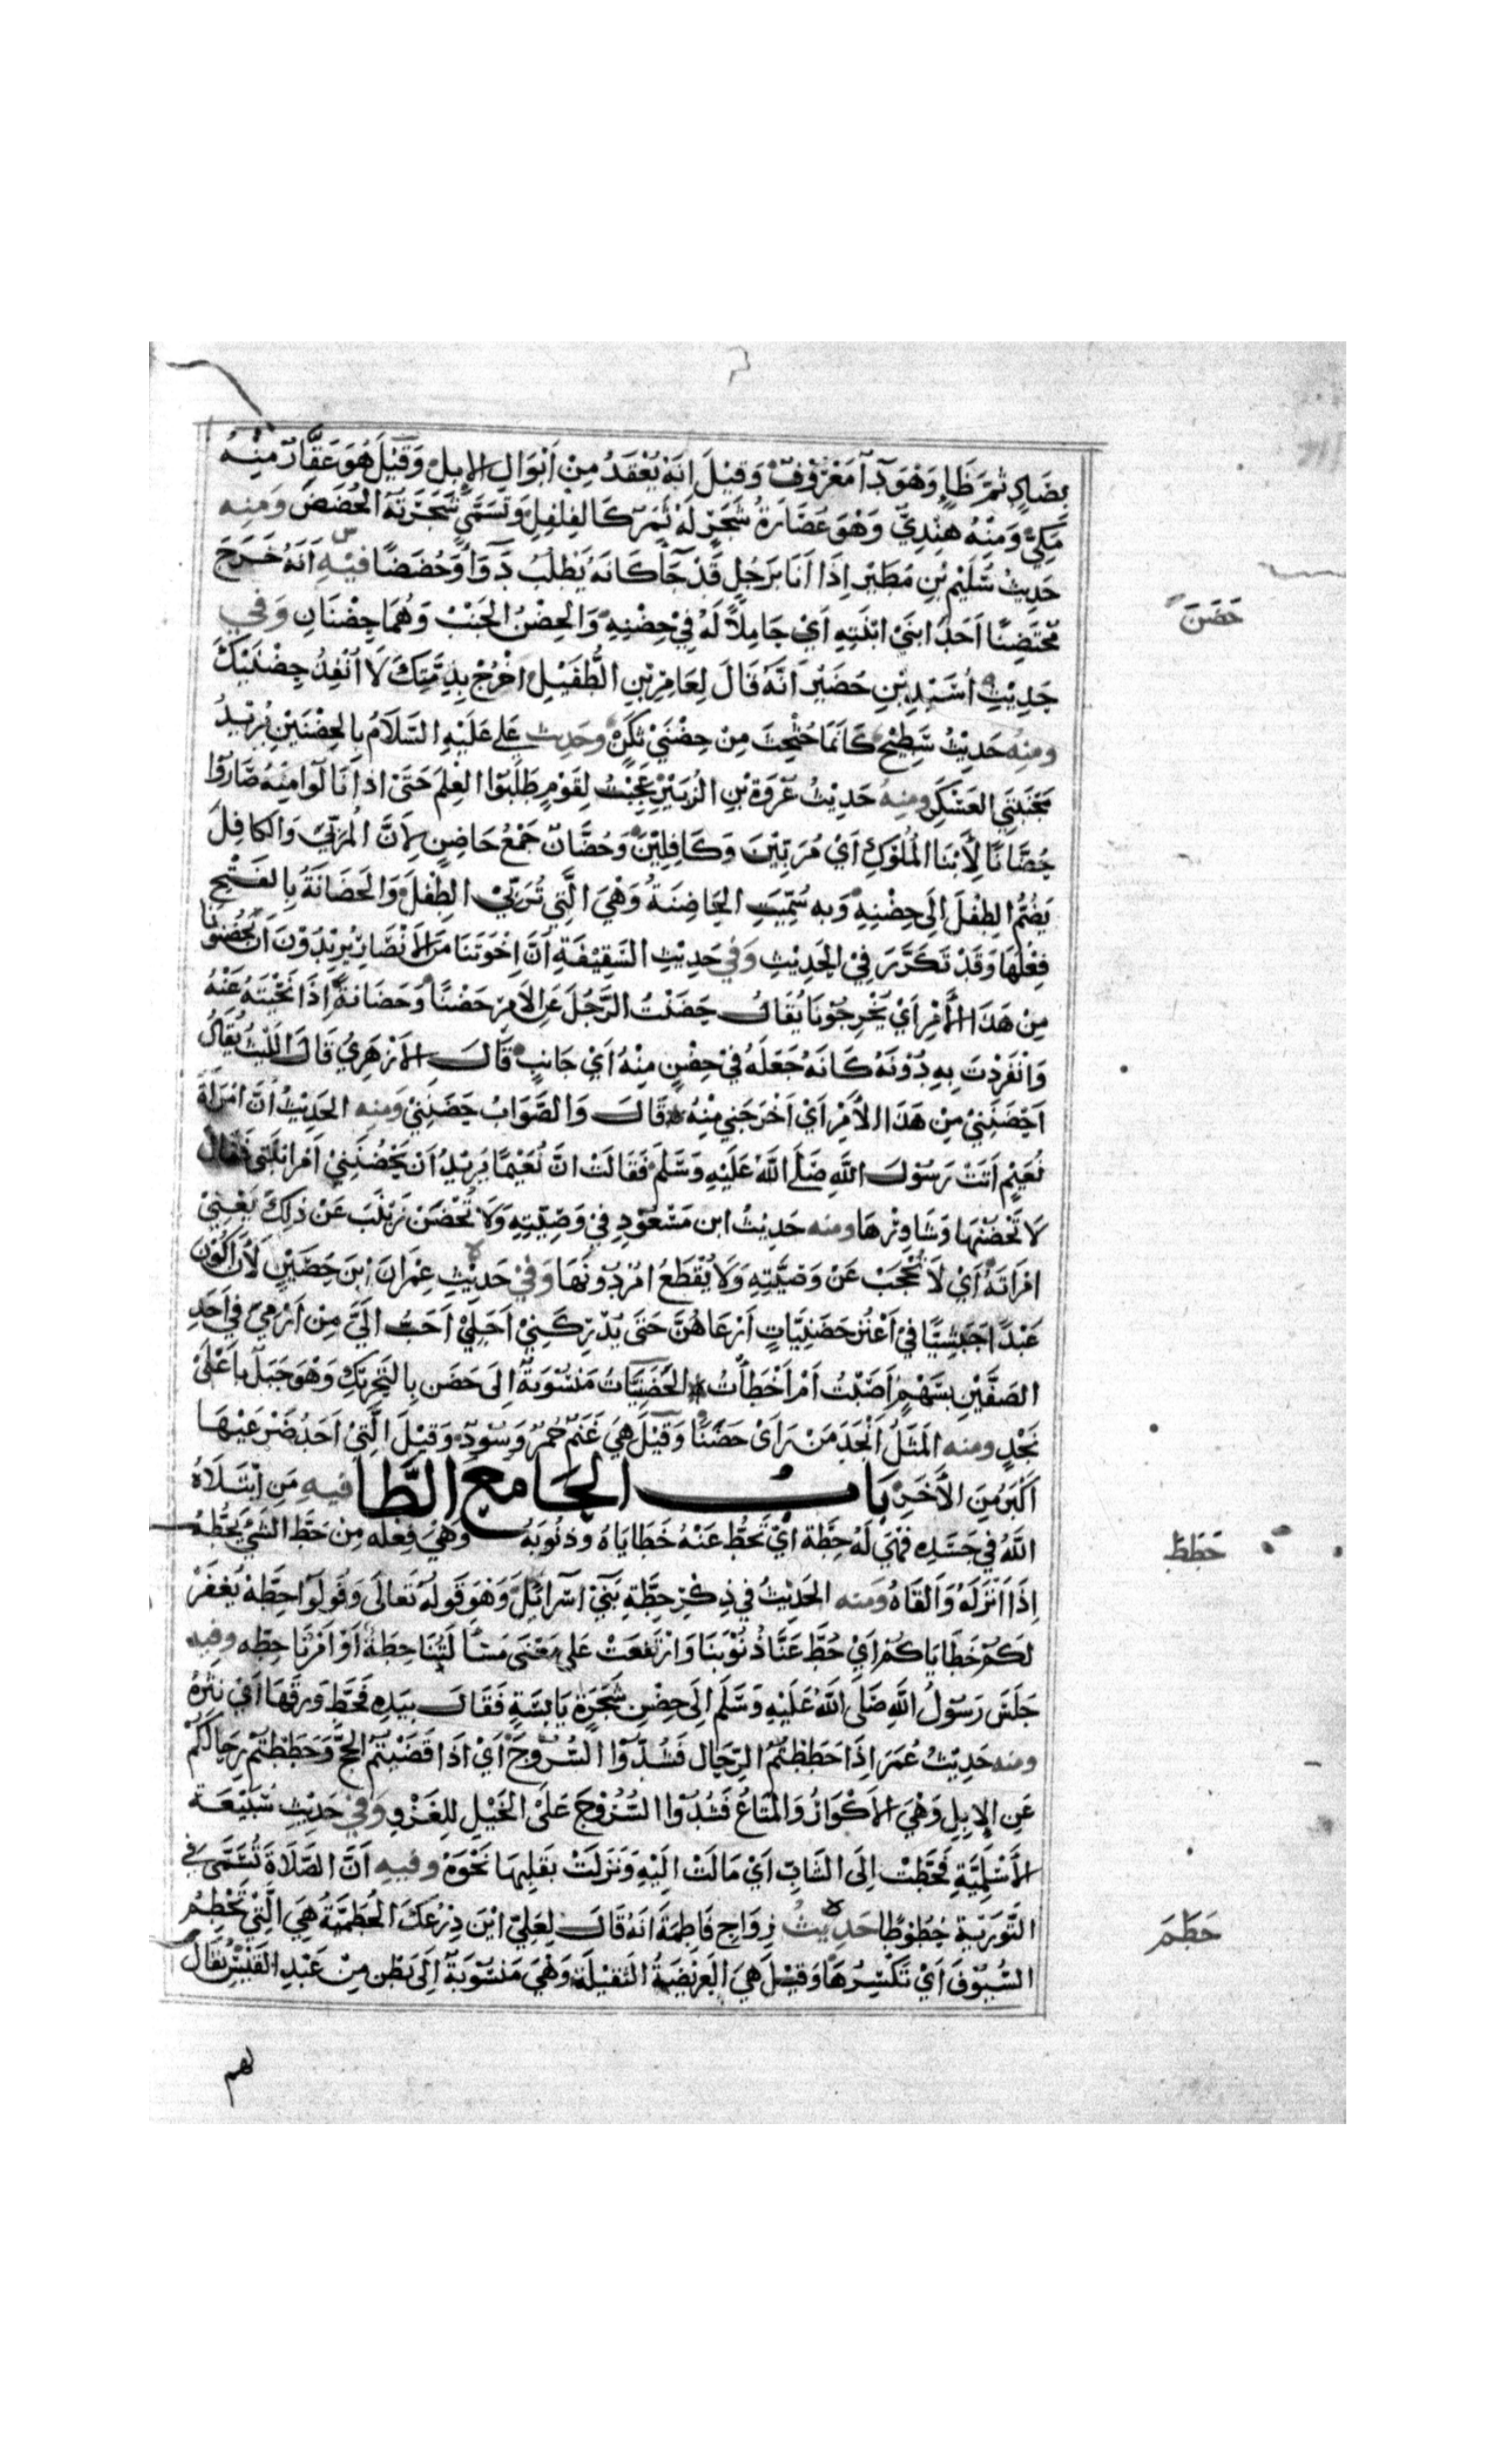 بِضَادٍ ثُمَّ ظَاءٍ وَهُوَ دَآءٌ مَعْرُوْفٌ وَقِيْلَ اِنَّهٗ يُعْقَدُ مِنْ اَبْوَالِ الاِبِلِ وَقِيْلَ هُوَ عَقَّارٌ مِنْهُ
مَكِّيٌّ وَمِنْهُ هِنْدِيٌّ وَهُوَ عُصَارَةُ شَجَرٍ لَهٗ ثَمَرٌ كَالفِلفِلِ وَتُسَمَّى شَجَرَتَهٗ الحُضَضَ وَمِنِه
حَدِيْثُ سُلَيْمِ بْنِ مُطَيْرٍ اِذَا اَنَا بِرَجُلٍ قَدْ جَآءَ كَاَنَّهٗ يَطْلُبُ دَوَآءً وَحُضَضًا فِيْهِ اَنَّهُ خَرَجَ
حضن
مُحْتَضِنًا اَحَدَ ابْنَيْ ابْنَتِهِ اَيْ حَامِلًا لَهُ فِيْ حِضْنِهِ وَالحِضْنُ الجَنْبُ وَهُمَا حِضْنَانِ وَفِي
حَدِيْثِ اُسَيْدِ بْنِ حُضَيْرٍ اَنَّهُ قَالَ لِعَامِرِ بْنِ الطُّفَيْلِ اُخْرُجْ بِذِمَّتِكَ لَا اُنْفِذُ حِضْنَيْكَ
ومنه حَدِيْثُ سَطِيْحٍ كَاَنَّمَا حُثْحِثَ مِنْ حِضْنَيْ ثَكَنْ وحَدِيث عَلِي عَلَيْهِ السَّلَامُ بالحِضْنَيْنِ يُرِيْدُ
مُجَنِّبَتَيِ العَسْكَرِ ومنه حَدِيْثُ عُرْوَةَ بْنِ الزُّبَيْرِ عَجِبْتُ لِقَوْمٍ طَلَبُوا العِلْمَ حَتَّى اِذَا نَالُوا مِنْهُ صَارُوْا
حُضَّانًا لِأَبْنَاءِ المُلُوْكِ اَيْ مُرَبِّيْنَ وَكَافِلِيْنَ وَحُضَّانٌ جَمْعُ حَاضِنٍ لِاَنَّ المُرَبِّيَ وَالكَافِلَ
يَضُمُّ الطِفْلَ اِلَى حِضْنِهِ وَبِه سُمِّيَتِ الحَاضِنَةُ وَهْيَ الَّتِي تُرَبِّيْ الطِّفْلَ وَالحَضَانَةُ بِالفَتْحِ
فِعْلُهَا وَقَدْ تَكَرَّرَ فِيْ الحَدِيْثِ وَفي حَدِيْثِ السَّقِيْفَةِ اَنَّ اِخْوَتَنَا مِنَ الاَنْصَارِ يُرِيْدُوْنَ اَنْ يَحْضُنُوْنَا
مِنْ هَذَا الاَمْرِ اَيْ يُخْرِجُوْنَا يُقَالُ حَضَنْتُ الرَّجُلَ عَنِ الاَمْرِ حَضْنًا وَحَضَانَةً اِذَا نَحَّيْتَهٗ عَنْهُ
وَانْفَرَدْتَ بِهِ دُوْنَهُ كَاَنَّهُ جَعَلَهُ فِيْ حِضْنٍ مِنْهُ اَيْ جَانِبٍ قَالَ الاَزْهَرِيُّ قَالَ اللَّيْثُ يُقَالُ
اَحْضَنَنِيْ مِنْ هَذَا الاَمْرِ اَيْ اَخْرَجَنِي مِنْهُ قَالَ وَالصَّوَابُ حَضَنَنِيْ ومنه الحَدِيْثُ اَنَّ امْرَاَةَ
نُعَيْمٍ اَتَتْ رَسُوْلَ اللّٰهِ صَلَّى اللّٰهُ عَلَيْهِ وَسَلَّمَ فَقَالَتْ اِنَّ نُعَيْمًا يُرِيْدُ اَنْ يَحْضُنَنِيْ اَمْرَ ابْنَتِي فَقَالَ
لَا تَحْضُنْهَا وَشَاوِرْهَا ومنه حَدِيْثُ ابن مَسْعُوْدٍ فِيْ وَصِيَّتِهِ وَلَا تُحْضَنُ زَيْنَبُ عَنْ ذَلِكَ يَعْنِيْ
امْرَاَتَهُ اَيْ لَا تُحْجَبُ عَنْ وَصِيَّتِهِ وَلَا يُقْطَعُ اَمْرٌ دُوْنَهَا وَفِيْ حَدِيْثِ عِمْرَانَ ابْنِ حُصَيْنٍ لَأَنْ اَكُوْنَ
عَبْدًا حَبَشِيًّا فِيْ اَعْنُزٍ حَضَنِيَّاتٍ اَرْعَاهُنَّ حَتَّى يُدْرِكَنِيْ اَجَلِيْ اَحَبُّ اِلَيَّ مِنْ اَنْ اَرْمِيَ فِي اَحَدِ
الصَفَّيْنِ بِسَهْمٍ اَصَبْتُ اَمْ اَخْطَاْتُ الحَضَنِيَّاتُ مَنْسُوْبَةٌ اِلَى حَضَنٍ بِالتَّحْرِيْكِ وَهُوَ جَبَلٌ باَعْلَىْ
نَجْدٍ ومنه المَثَلُ اَنْجَدَ مَنْ رَاَى حَضَنًا وَقِيْلَ هِيَ غَنَمٌ حُمْرٌ وَسُوْدٌ وَقِيْلَ الَّتِيْ اَحَدُ ضَرْعَيْهَا
اَكْبَرُ مِنَ الآخَرِ بَابُ الحَامَعَ الطَّا فيهِ مَنِ ابْتَلَاهُ
حطط
اللّٰهُ فِي جَسَدِهِ فَهْيَ لَهُ حِطَّة اَيْ تَحُطُّ عَنْهُ خَطَايَاهُ وذنُوبَهُ وَهْيَ فِعْلَه مِنْ حَطَّ الشَيْءَ يَحُطُّهُ
اِذَا اَنْزَلَهُ وَاَلْقَاهُ ومنه الحَدِيْثُ فِي ذِكْرِ حِطَّةِ بَنِيْ اِسْرَائِيْلَ وَهُوَ قَولُهُ تَعَالَى وَقُولُوا حِطَّةٌ يَغْفِرْ
لَكُمْ خَطَايَاكُمْ اَيْ حُطَّ عَنَّا ذُنُوْبَنَا وَارْتَفَعَتْ عَلى مَعْنَى مَسْاَلَتُنَا حِطَةٌ اَوْ اَمْرُنَا حِطَّه وفيه
جَلَسَ رَسُوْلُ اللّٰهِ صَلَّى اللّٰهُ عَلَيْهِ وَسَلَّمَ اِلَى حِضْنِ شَجَرَةٍ يَابِسَةٍ فَقَالَ بِيَدِهِ فَحَطَّ وَرقَهَا اَيْ نَثَرَهُ
ومنه حَدِيْثُ عُمَرَ اِذَا حَطَطْتُمُ الرِّحَالَ فَشُدُّوْا السُّرُوْجَ اَيْ اِذَا قَضَيْتُمُ الحَجَّ وَحَطَطْتُمْ رِحَالَكُمْ
عَنِ الاِبِلِ وَهْيَ الاَكْوَارُ وَالمَتَاعُ فَشُدُّوْا السُّرُوْجَ عَلَىْ الخَيْلِ لِلغَزْوِ وَفِيْ حَدِيْثِ سُبَيْعَة
الاَسْلَمِيَّةِ فَحَطَّتْ اِلَى الشَابِّ اَيْ مَالَتْ اِلَيْهِ وَنَزَلَتْ بِقَلبِهَا نَحْوَهُ وفيهِ اَنَّ الصَّلَاةَ تُسَمَّى في
حطم
التَّوْرَية حُطُوْطًا حَدِيثُ زِوَاجِ فَاطِمَةَ اَنَّهُ قَالَ لِعَلِيٍّ اَيْنَ دِرْعُكَ الحُطَمِيَّةُ هِيَ الَّتِيْ تَحْطِمُ
السُّيُوْفَ اَيْ تُكَسِّرُهَا وَقِيْلَ هِيَ العَرِيْضَةُ الثقِيْلَةُ وَهْيَ مَنْسُوْبَةٌ اِلَى بَطْنٍ مِنْ عَبْدِ القَيْسِ يُقَالُ
لهم